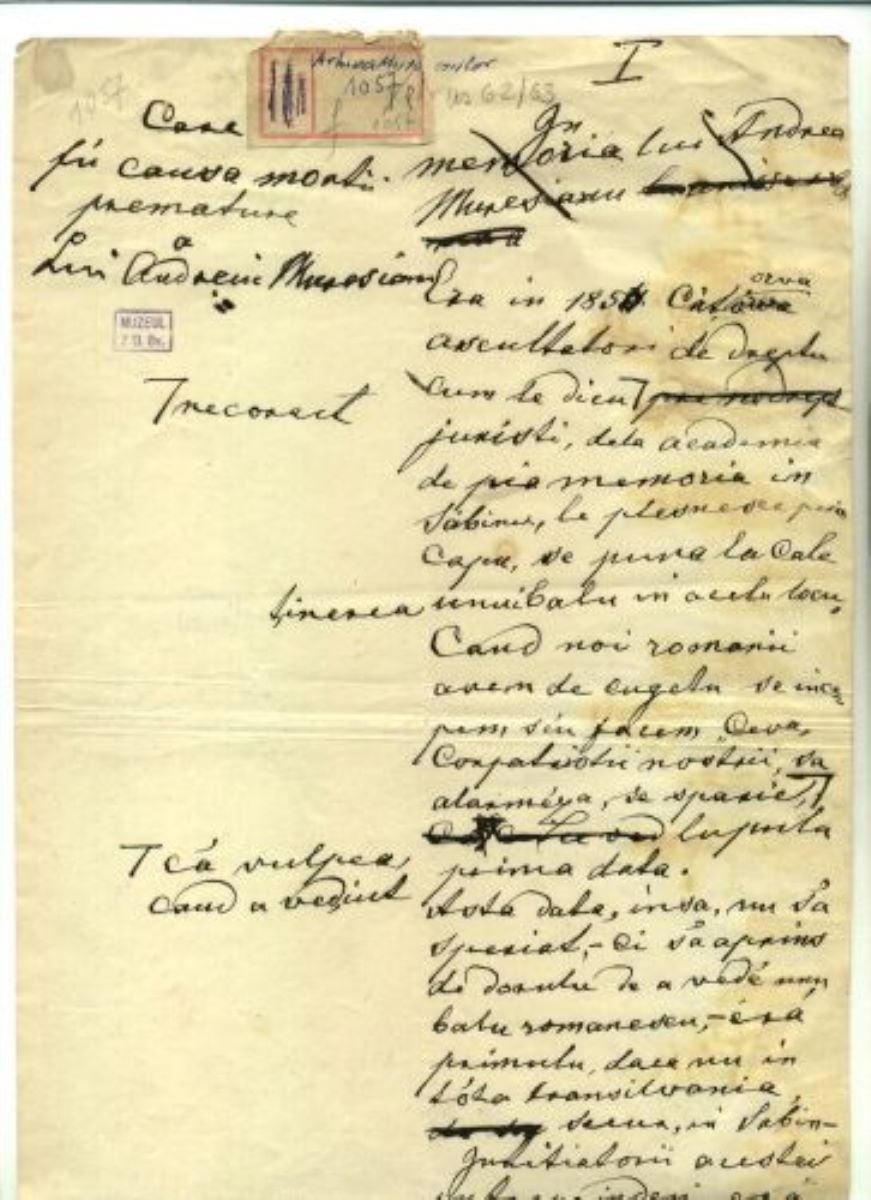 I
Arhiva Mureșenilor
1057
1057
Nr 62/63
Care
fu causa mortii
premature
a
Lui Andreiu Muresianu
MUZEUL
In
memoria lui Andrea
Muresianu
Era in 185 Câtorva
ascultatori de dreptu
cum le dicu T
T necorect
juristi, dela academia
de pia memoria in
Sabiniu, le plesnesce prin
Capu, se puna la Cale
tinerea unui balu in acelu locu.
Cand noi romanii
avem de cugetu se ince
pem siu facem Ceva,
Compatriotii nostrii, sa
alarméza, se sparie, T
T că vulpea,
cand a vediut
lupula
prima data.
Asta data, insa, nu s'a
speriat, - Ci s'a aprins
de dorulu de a vedé unu
balu romanescu, - éra
primulu, daca nu in
tóta transilvania,
secur, in Sabin-
Initiatorii acestei